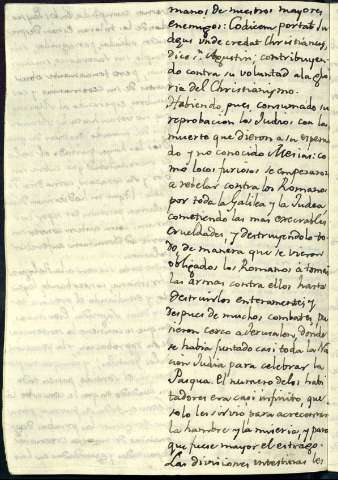 manos de nuestros mayores
enemigos: Codicem portat Ju-
deus unde credat Christianus,
dice S. Agustin; contribuyen-
do contra su voluntad a la glo-
ria del Christianismo.
Habiendo, pues, consumado su
reprobacion los Judios con la
muerte que dieron a su espera-
do y no conocido Mesias: co
mo locos furiosos se empezaron
a rebelar contra los Romanos
por toda la Galilea y la Judea
cometiendo las mas execrables
crueldades, y destruyendolo to-
do, de manera que se vieron
obligados los Romanos a tomar
las armas contra ellos hasta
destruirlos enteramente; y
despues de muchos combates, pu
sieron cerco a Jerusalen, donde
se habia juntado casi toda la Na
cion Judia para celebrar la
Pasqua. El numero de los habi
tadores era casi infinito, que
solo les sirvio para acrecentar
la hambre y la miseria, y para
que fuese mayor el estrago.
Las divisiones intestinas les